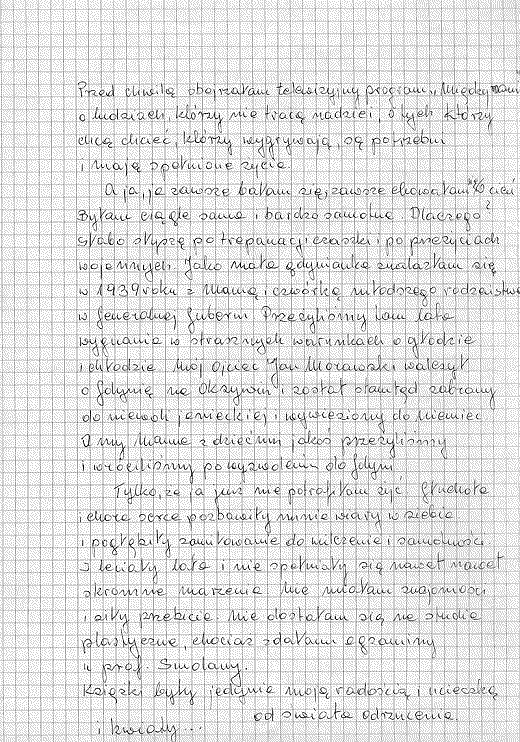 Przed chwilą obejrzałam telewizyjny program „Między nami"
o ludziach, którzy nie tracą nadziei, o tych którzy
chcą chcieć, którzy wygrywają, są potrzebni
i mają spełnione życie.
A ja, ja zawsze bałam się, zawsze chowałam w cień
Byłam ciągle sama i bardzo samotna. Dlaczego?
Słabo słyszę po trepanacji czaszki i po przeżyciach
wojennych. Jako mała gdynianka znalazłam się
w 1939 roku z Mamą i czwórką młodszego rodzeństwa
w Generalnej Guberni. Przeżyliśmy tam lata
wygnania w strasznych warunkach o głodzie
i chłodzie. Mój ojciec Jan Morawski walczył
o Gdynię na Oksywiu i został stamtąd zabrany
do niewoli jenieckiej i wywieziony do Niemiec
A my Mama z dziećmi jakoś przeżyliśmy
i wróciliśmy po wyzwoleniu do Gdyni
Tylko, że ja już nie potrafiłam żyć. Głuchota
i chore serce pozbawiły mnie wiary w siebie
i pogłębiły zamiłowanie do milczenia i samotności
I leciały lata i nie spełniały się nawet nawet
skromne marzenia. Nie miałam znajomości
i siły przebicia. Nie dostałam się na studia
plastyczne, chociaż zdałam egzaminy
u prof. Smolany.
Książki były jedynie moją radością i ucieczką
od świata odrzucenia.
i kwiaty...